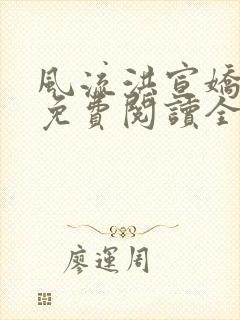 風流洪宣嬌
免費閱讀全
廖運周